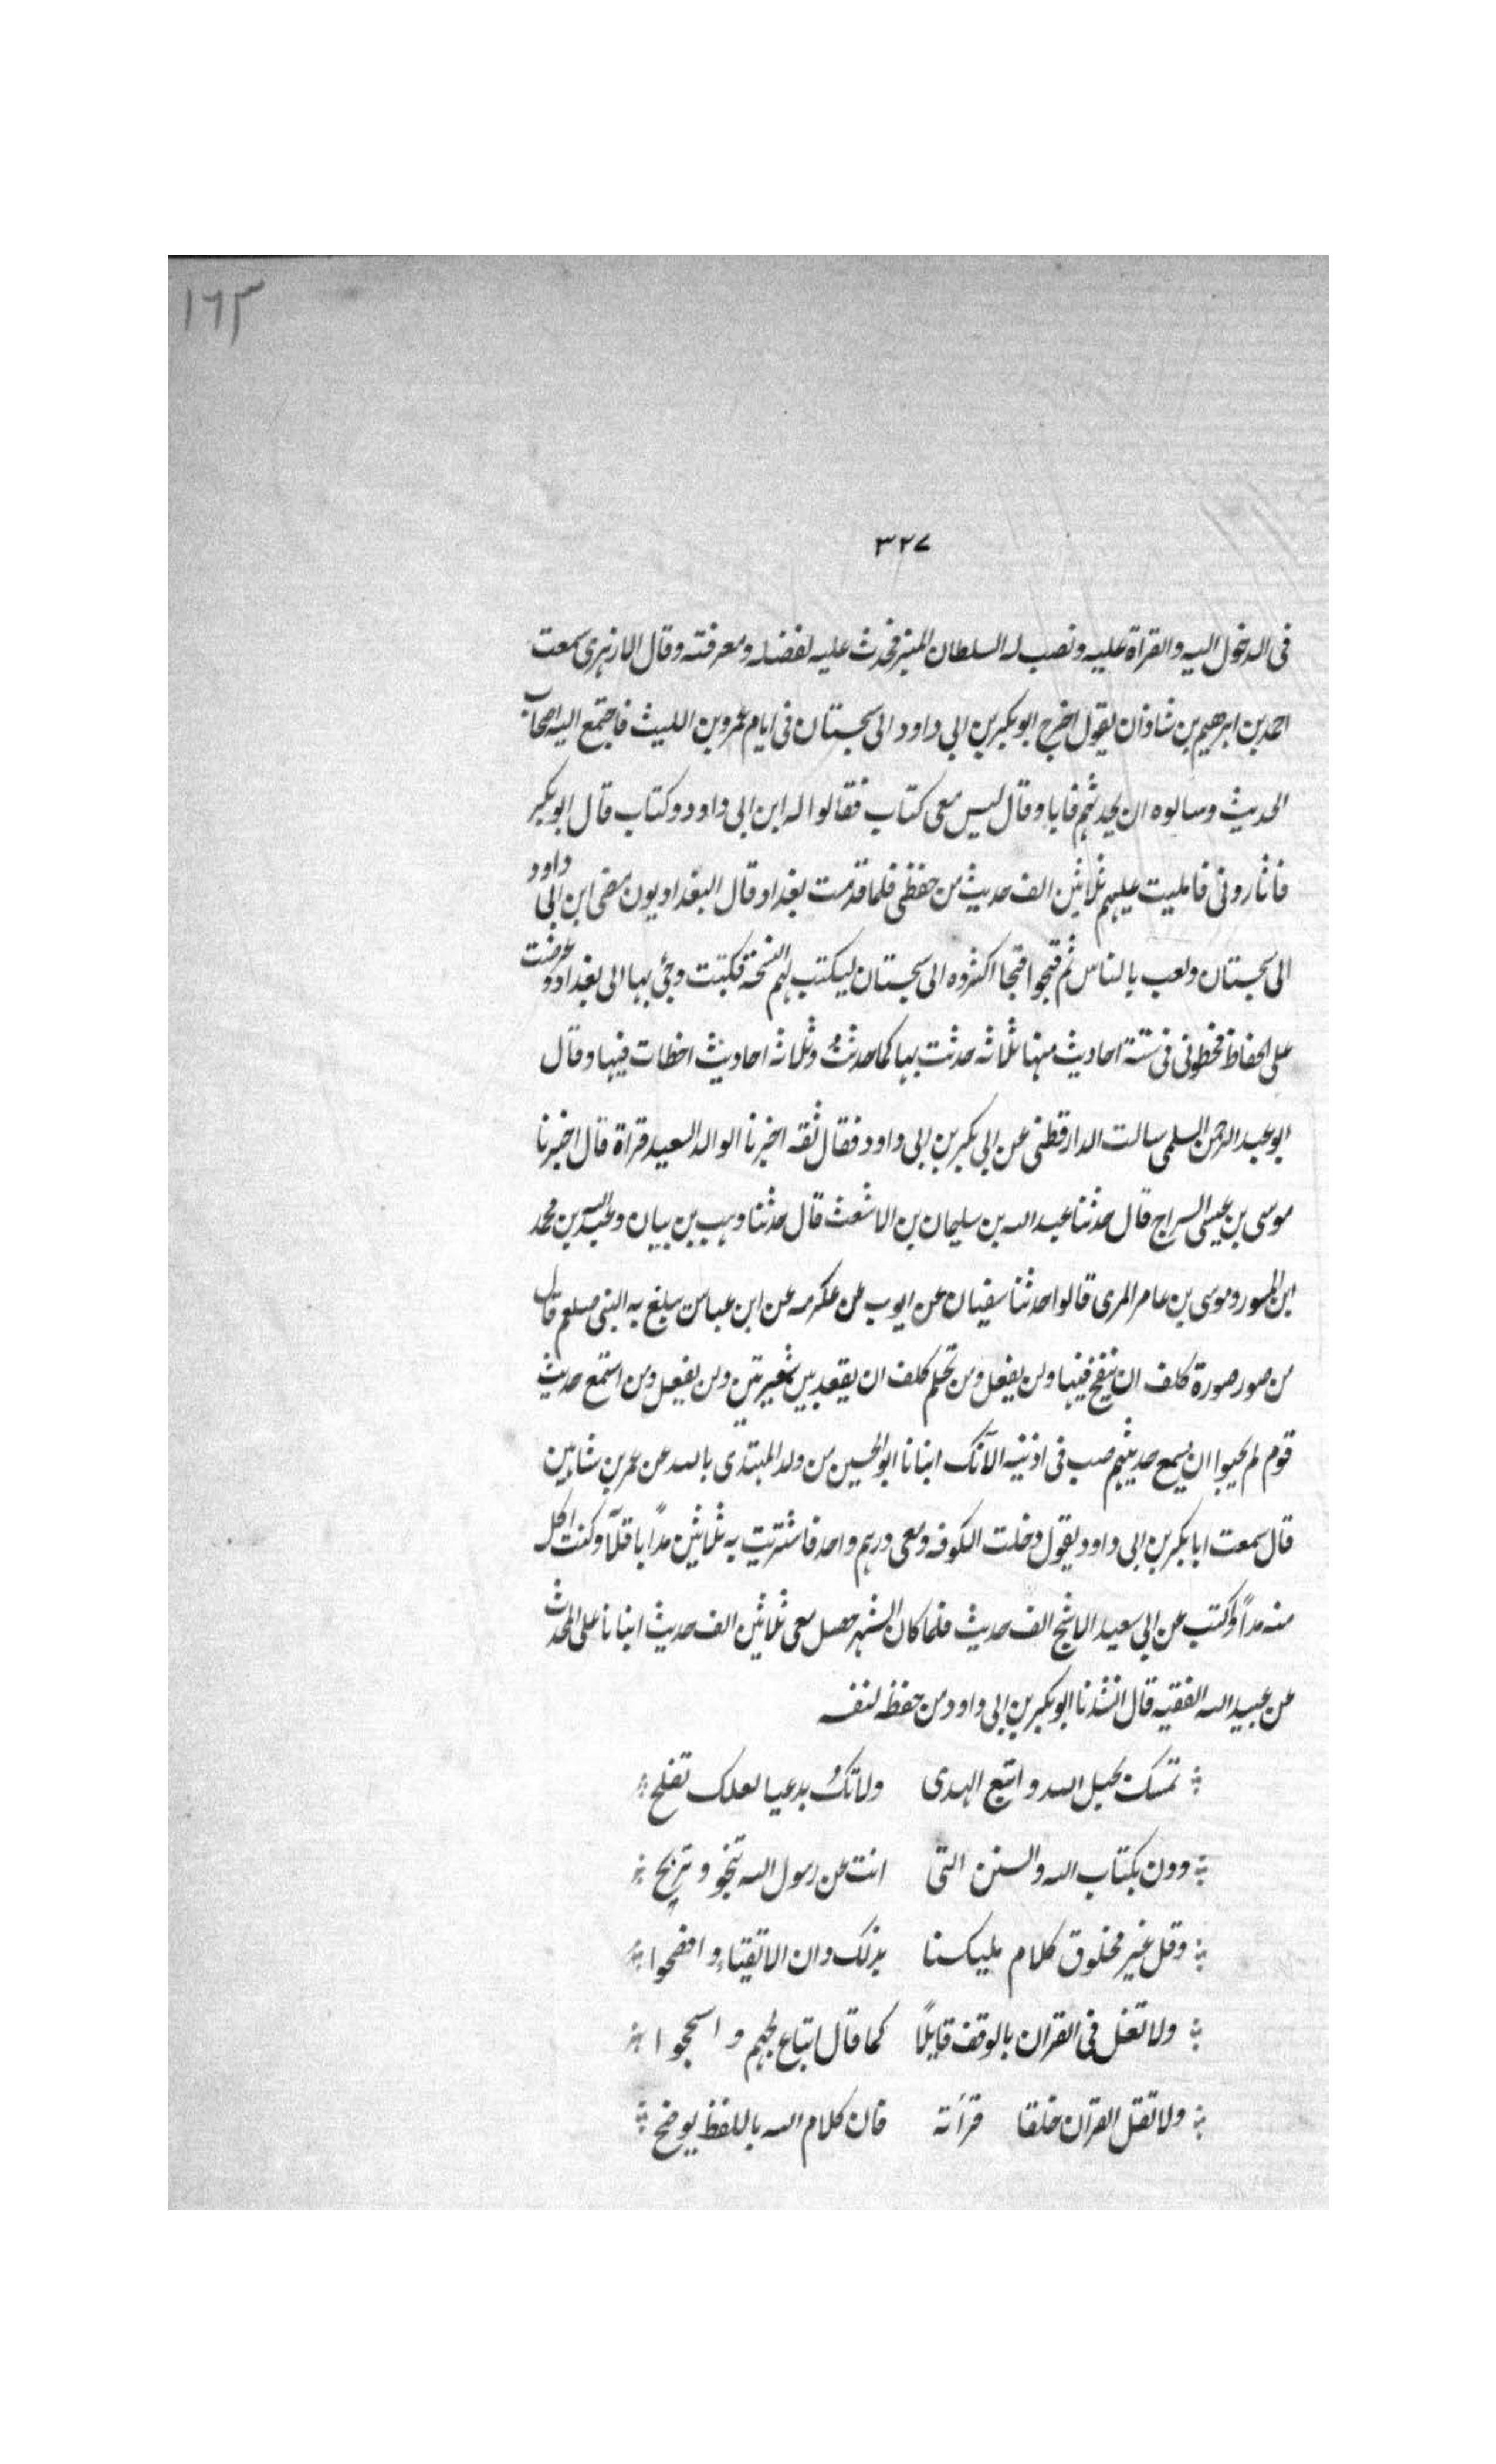 ١٦٣
٣٢٧
فى الدخول اليه والقراة عليه ونصب له السلطان المنبر فحدث عليه لفضله ومعرفته وقال الازهرى سمعت
احمد بن ابرهيم بن شاذان يقول اخرج ابو بكر بن ابى داود الى سجستان فى ايام عمرو بن الليث فاجتمع اليه اصحاب
الحديث وسالوه ان يحدثهم فابا وقال ليس معى كتاب فقالوا له ابن ابى داود وكتاب قال ابو بكر
فاثارونى فامليت عليهم ثلاثين الف حديث من حفظى فلما قدمت بغداد قال البغداديون مضى ابن ابى داود
الى سجستان ولعب بالناس ثم فيجوا فيجا اكثروه الى سجستان ليكتب لهم النسخة فكتبت وجئ بها الى بغداد وعرضت
على الحفاظ فخطونى فى ستة احاديث منها ثلاثه حدثت بها كما حدثت وثلاثه احاديث اخطات فيها وقال
ابو عبد الرحمن السلمى سالت الدارقطنى عن ابى بكر بن ابى داود فقال ثقه اخبرنا الوالد السعيد قراة قال اخبرنا
موسى بن عيسى السراج قال حدثنا عبد الله بن سليمان بن الاشعث قال حدثنا وهب بن بيان وعبد الله بن محمد
ابن المسور وموسى بن عامر المرى قالوا حدثنا سفيان عن ايوب عن عكرمه عن ابن عباس يبلغ به النبى صلعم قال
من صور صورة كلف ان ينفخ فيها ولن يفعل ومن تحلم كلف ان يقعد بين شعيرتين ولن يفعل ومن استمع حديث
قوم لم يحبوا ان يسمع حديثهم صب فى اذنيه الآنك انبانا ابو الحسين من ولد المهتدى بالله عن عمر بن شاهين
قال سمعت ابا بكر بن ابى داود يقول دخلت الكوفه ومعى درهم واحد فاشتريت به ثلاثين مدًا باقلآ وكنت اكل
منه مدًا وكتب عن ابى سعيد الاشج الف حديث فلما كان الشهر حصل معى ثلاثين الف حديث انبانا على المحدث
عن عبيد الله الفقيه قال انشدنا ابو بكر بن ابى داود من حفظه لنفسه
تمسك بحبل الله و اتبع الهدى ولا تكُ بدعيا لعلك تفلح
ودن بكتاب الله والسنن التى اتت عن رسول الله تنجو و تربح
وقل غير مخلوق كلام مليكنا بذلك دان الاتقياء و افصحوا
ولا تغل فى القران بالوقف قايلًا كما قال اتباع لجهم و اسجحوا
ولا تقل القران خلقا قرأته فان كلام الله باللفظ يوضح